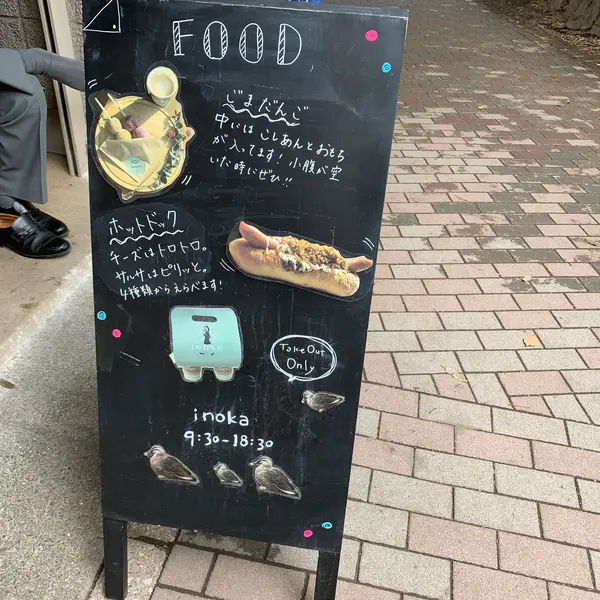 FOOD
ごまだんご
中にはこしあんとおもち
が入ってます！小腹が空
いた時にぜひ!!
ホットドック
チーズはトロトロ。
サルサはピリッと。
4種類からえらべます！
INOKA
Take Out
Only
inoka
9:30-18:30